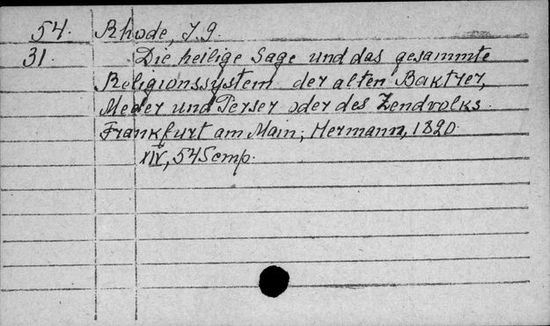 54. Rhode, J. G.
31. Die heilige Sage und das gesammte
Religionssystem der alten Baktrer,
Meder und Perser oder des Zendvolks.
Frankfurt am Main; Hermann, 1820.
XIV, 545 стр.